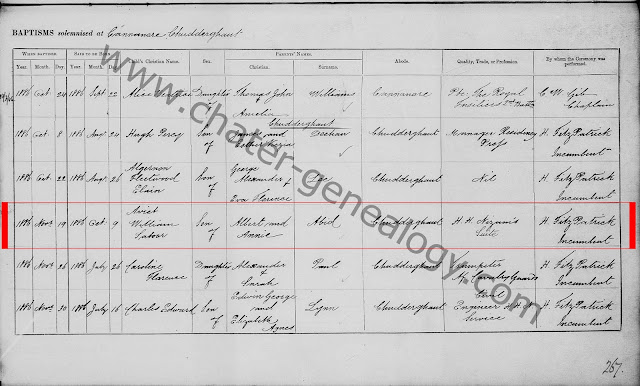 BAPTISMS solemnised at Cannanore Chudderghaut
WHEN BAPTISED. SAID TO BE BORN. PARENTS' NAMES.
Year. Month. Day. Year. Month. Day. Child's Christian Name. Sex. Christian. Surname. Abode. Quality, Trade, or Profession. By whom the Ceremony was performed.
1886 Oct 24 1886 Sept 22 Daughter Thomas John Williams Cannanore Pte. The Royal
of Amelia Chaplain
Chudderghaut
1886 Oct 8 1886 Augt 24 Hugh Percy Son and Chudderghaut Manager Residency H. FitzPatrick
of Press Incumbent
Algernon George
1886 Oct 22 1886 Augt 26 Fleetwood Son Alexander & Chudderghaut Nil H. FitzPatrick
of Eva Florence Incumbent
Avist
1886 Novr 19 1886 Oct 9 William Son Albert and Abid Chudderghaut H. H. Nezam's H. FitzPatrick
of Annie Suite Incumbent
1886 Novr 26 1886 July 26 Caroline Daughter Alexander Paul Chudderghaut Trumpeter H. FitzPatrick
Florence of & Sarah Incumbent
1886 Novr 30 1886 July 16 Charles Edward Son Edwin George Lynn Chudderghaut Civil Engineer H. FitzPatrick
of and Elizabeth Agnes Service Incumbent
267.
www.chater-genealogy.com